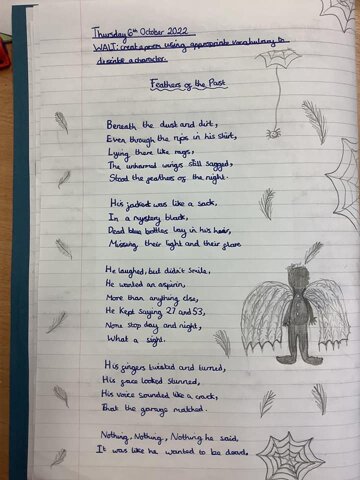 Thursday 6th October 2022
WALT: create a poem using appropriate vocabulary to
describe a character.
Feathers of the Past
Beneath the dust and dirt,
Even through the rips in his shirt,
Lying there like rugs,
The unharmed wings still sagged,
Stood the feathers of the night.
His jacket was like a sack,
In a mystery black,
Dead blue bottles lay in his hair,
Missing their light and their glare
He laughed, but didn't smile,
He wanted an aspirin,
More than anything else,
He Kept saying 27 and 53,
None stop day and night,
What a sight.
His fingers twisted and turned,
His face looked stunned,
His voice sounded like a crack,
That the garage matched.
Nothing, Nothing, Nothing he said,
It was like he wanted to be dead.